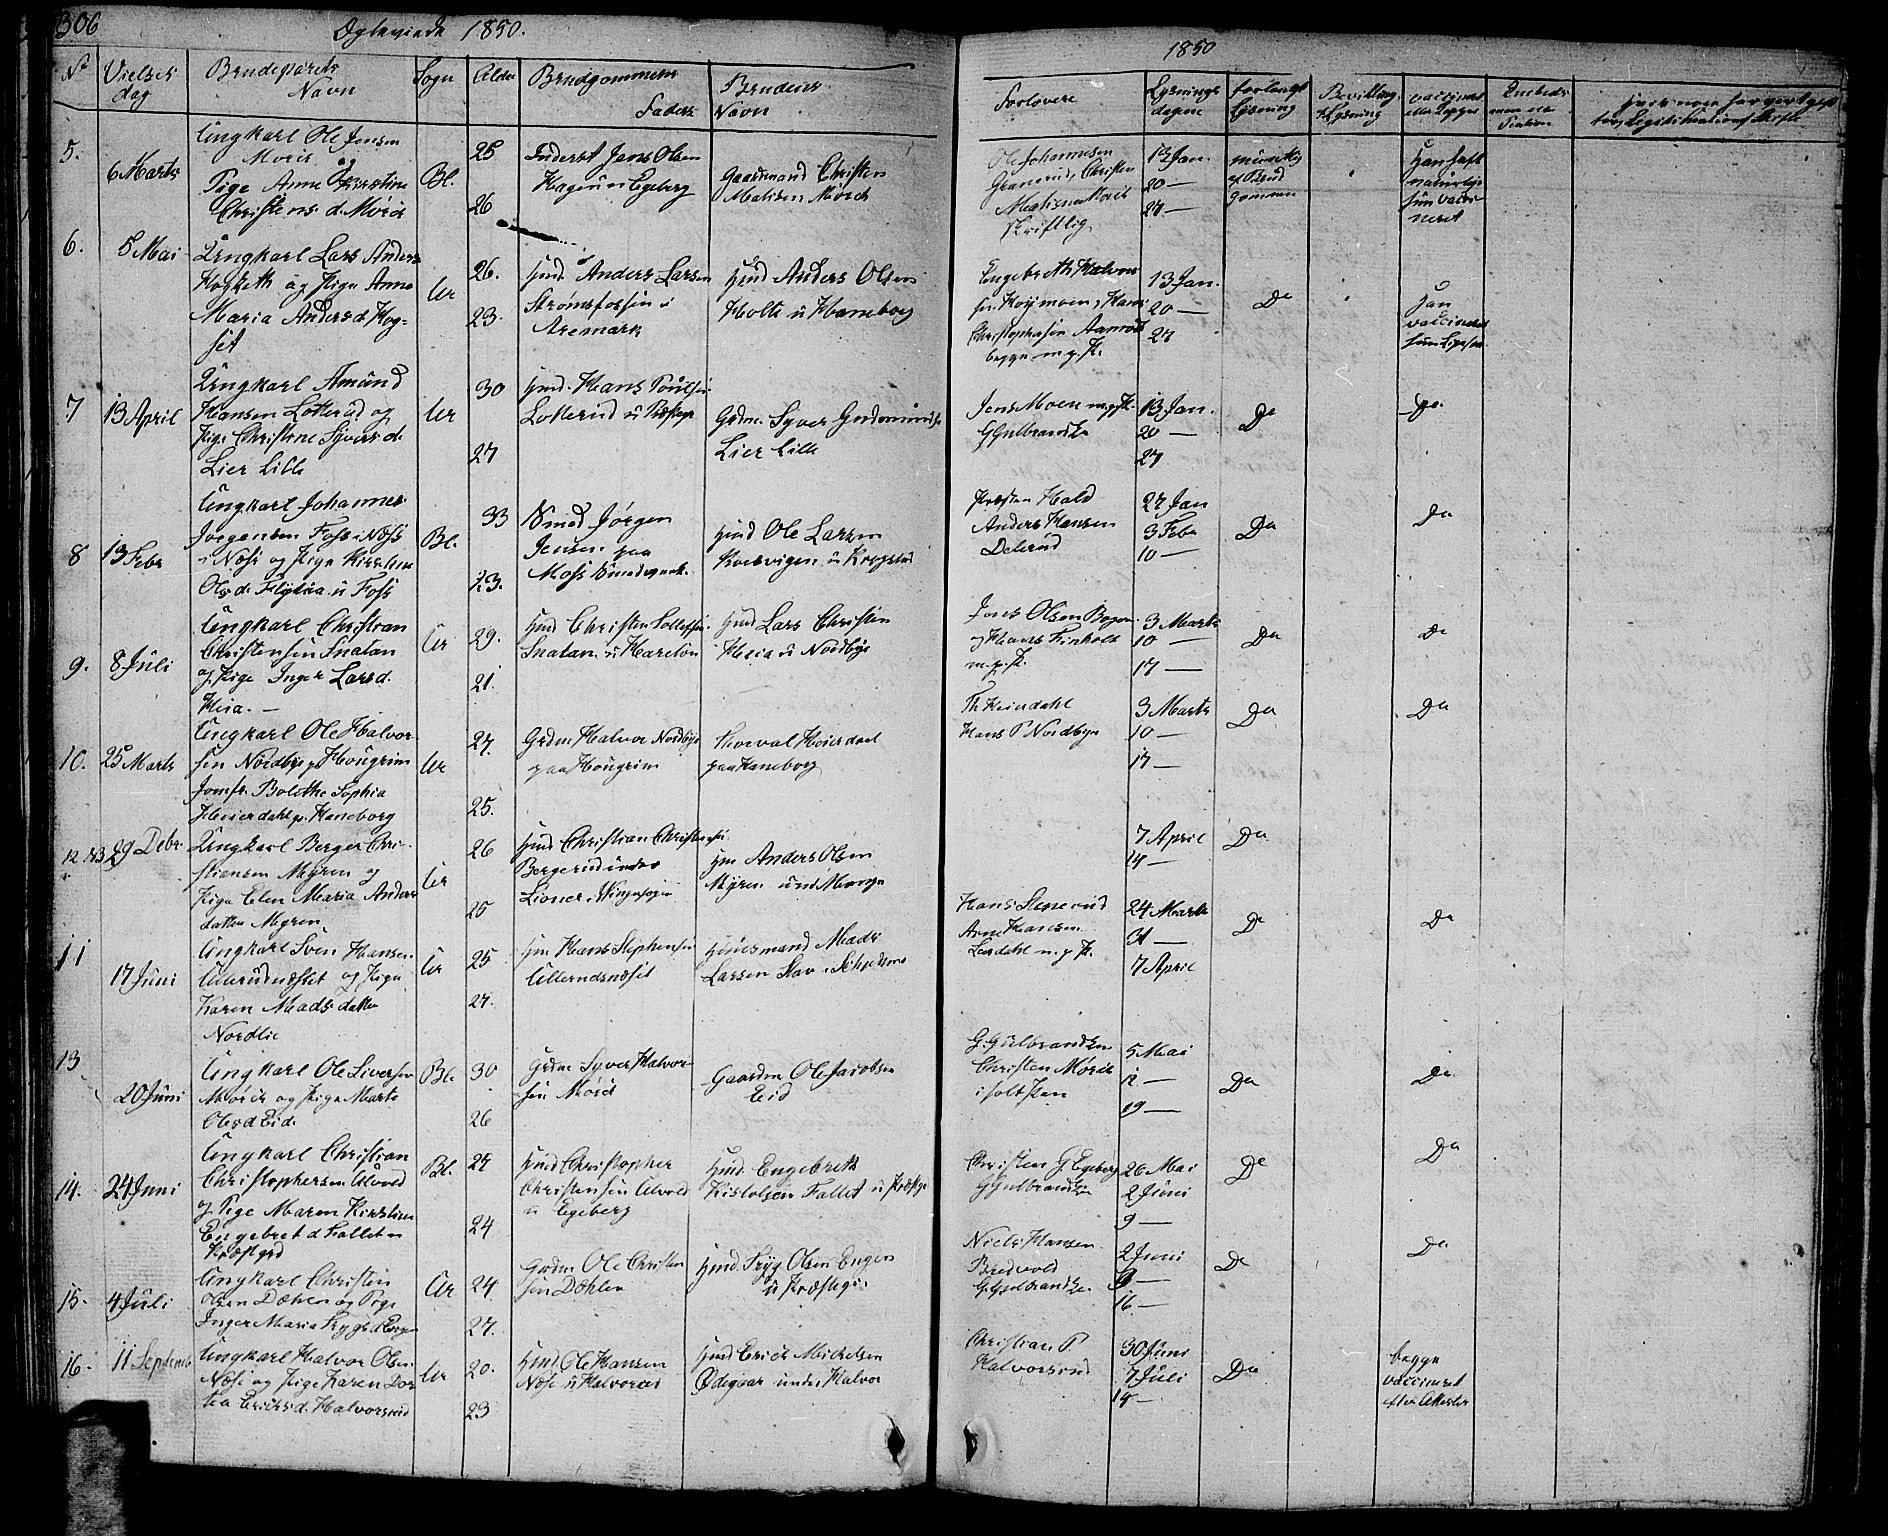 306
Ægteviede 1850.
1850
No
Vielses
dag
Brudeparets
Navn
Sogn
Alder
Brudgommens
Fader
Brudens
Navn
Forlovere
Lysnings
dagene
forlangt
Lysning
Bevilling
Lysning
vaccineret
5.
6 Marts
Ungkarl Ole Jensen
Mörk og
Pige Anne Kirstine
Christens d. Mörk
Bl.
25
26
Inderst Jens Olsen
Hagen u Egeberg
Gaardmand Christen
Madsen Mörk
Ole Johannesen
Granerud, Christen
Madsen Mörk
skriftlig
13 Jan.
20 —
27 —
mundtlig
af Brud
gommen
Han havt
naturlige
hun vacci
neret
6.
5 Mai
Ungkarl Lars Anders
og Pige Anne
Maria Anders d. Hog-
set
Ur
26.
23.
Hmd. Anders Larsen
Strömsfossen i
Aremark
Hmd Anders Olsen
Holte u Haneborg
13 Jan.
20 —
27
begge m. p. P.
Do
Han
vaccineret
7
13 April
Ungkarl Amund
Hansen Lotterud og
Pige Christine Syvers d.
Lier Lille
Ur
30
27
Hmd. Hans Poulsen
Lotterud u Præsteg.
Grdm. Syver Gudmunds
Lier Lille
Jens Moen m. p. P.
G Gulbrandsen
13 Jan.
20 —
27
Do
Do.
8
13 Febr
Ungkarl Johannes
Jørgensen Foss i Næss
i Næss og Pige Kirstine
Ols d. u Foss
Bl.
33
23.
Smed Jörgen
Jensen paa
Moss
Hmd Ole Larsen
u Krogstad
Præsten Hald
Anders Hansen
Delerud
27 Jan
3 Febr
10 —
Do
Do
9.
8 Juli
Ungkarl Christian
Christensen Snalan
og Pige Inger Lars d.
Heia. —
Ur
29.
21.
Hmd Christen Tollefsen
Snalan
Hmd Lars Christen
Heia u Nordbye
Jens Olsen Bøgen
og Hans Finholt
m. p. P.
3 Marts
10 —
17 —
Do
Do
10.
25 Marts
Ungkarl Ole Halvor
sen Nordbye Hougrim
Jomfr. Bolethe Sophia
Heierdahl p. Haneborg
Ur
27.
25.
Grdm Halvor Nordbye
paa Hougrim
Thorval Heierdahl
paa Haneborg
Th Heierdahl
Hans P Nordbye
3 Marts
10 —
17 —
Do
Do
12.
29 Debr.
Ungkarl Berger Chri-
stiansen Myren og
Pige Elen Maria Anders
datter Myren
Ur
26
25
Hmd Christian Christensen
Bergerud under
Hm Anders Olsen
Myren
7 April
14 —
Do
11
17 Juni
Ungkarl Sven Hansen
Ullerudnæsset og Pige
Karen Mads datter
Nordlie
Ur
25
27.
Hm Hans Stephensen
Ullerudsnæset
Huusmand Mads
Larsen
Hans Stenerud
Arne Hansen
m. p. P.
24 Marts
31 —
7 April
Do
Do
13
20 Juni
Ungkarl Ole Siversen
Mörk og Pige Marte
Ols d Eid.
Bl.
30
26
Grdm Syver Halvor-
sen Mörk
Gaardm Ole Jacobsen
Eid
G. Gulbrandsen
Christen Mörk
5 Mai
12 —
19 —
Do
Do
14.
24 Juni
Ungkarl Christian
Christophersen Ulvold
og Pige Maren Kirstine
Engebret d Fallet u
Præstgrd
Bl.
27
24
Hmd Christopher
Christensen Ulvold
u Egeberg
Hmd. Engebret
Kistolsen Fallet u Præstg.
Christen G. Egeberg
G Gulbrandsen
26 Mai
2 Juni
9 —
Do
Do
15.
4 Juli
Ungkarl Christen
Olsen Dæhlen og Pige
Inger Maria Trygs d Engen
Ur
24
27.
Grdm Ole Christen
sen Dæhlen
Hmd. Tryg Olsen Engen
u Præsteg:
Niels Hansen
Bredvold
G. Gulbrandsen
2 Juni
9 —
16 —
Do
Do
16.
11 Septemb.
Ungkarl Halvor Olsen
Næss og Pige Karen Dor
tea Eriks d. Halvorsrud
Ur
20.
23
Hmd. Ole Hansen
Næss u Halvorsrud
Hmd Erick Mickelsen
Ödegaar under Halvor
Christian P.
Halvorsrud
30 Juni
7 Juli
14 —
Do
begge
vaccineret
efter Attester